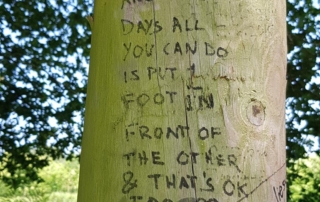 DAYS ALL
YOU CAN DO
IS PUT 1
FOOT IN
FRONT OF
THE OTHER
& THAT'S OK